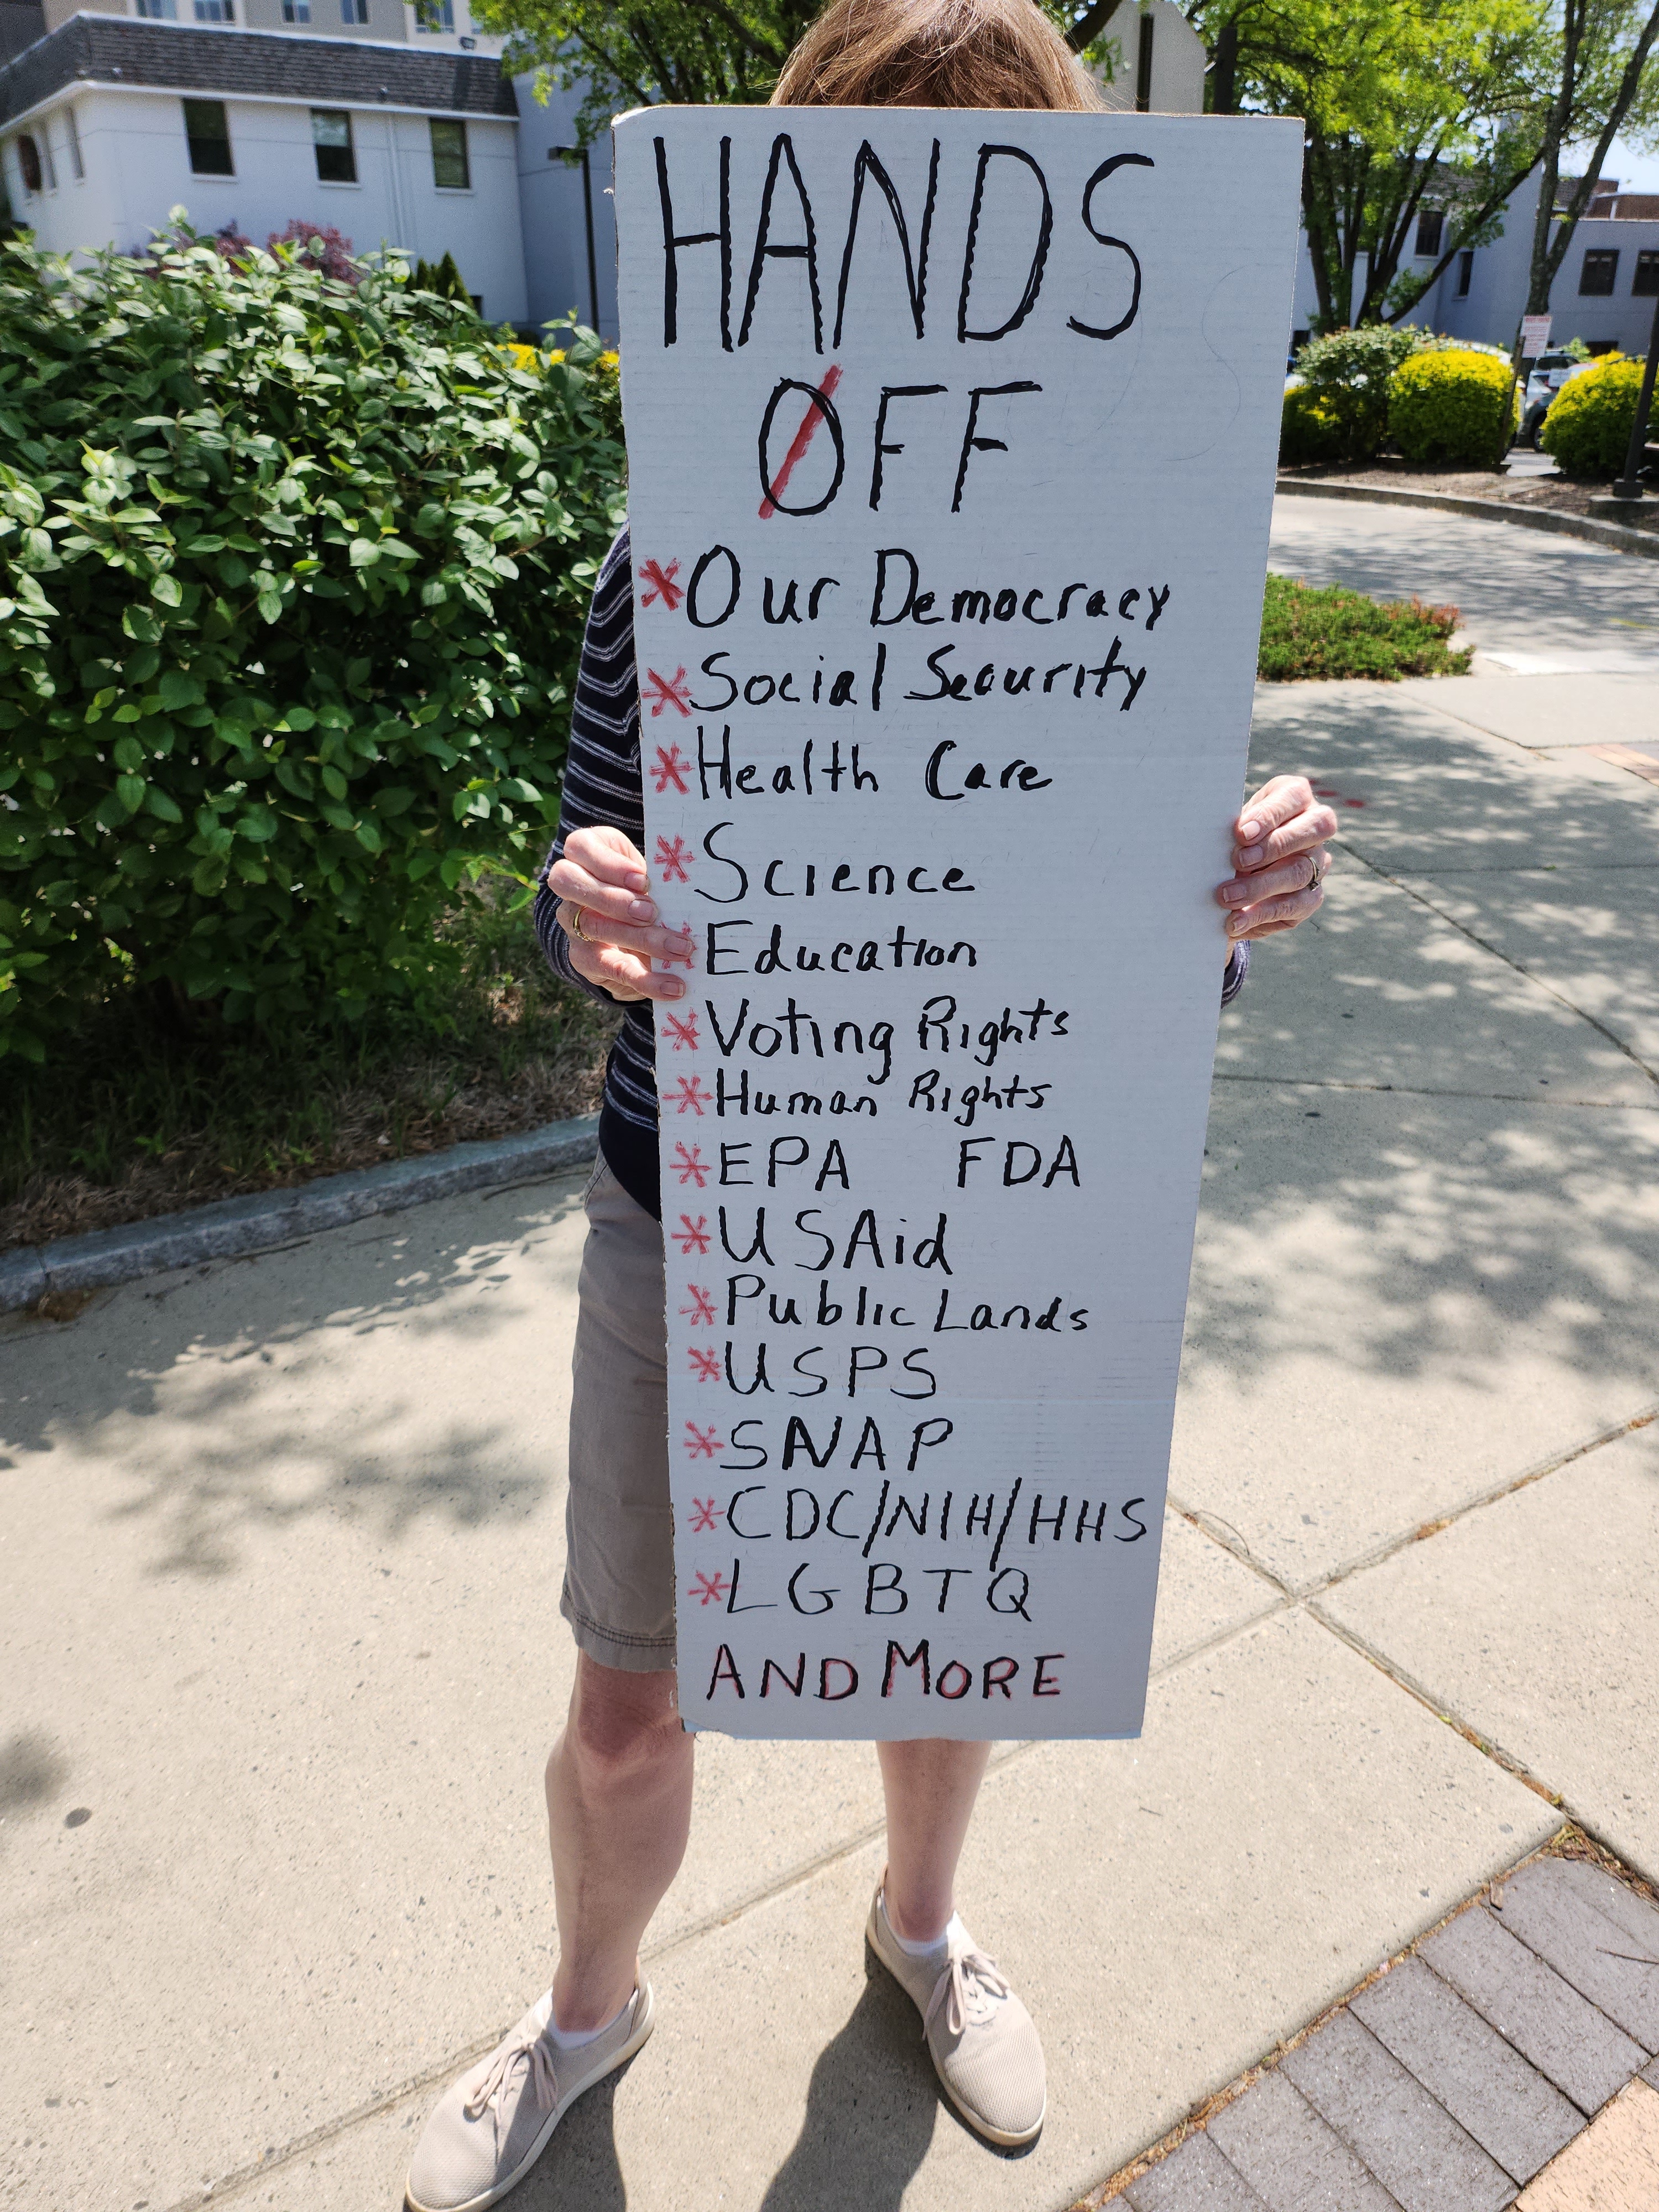 HANDS
OFF
*Our Democracy
*Social Security
*Health Care
*Science
*Education
*Voting Rights
*Human Rights
*EPA FDA
*USAid
*Public Lands
*USPS
*SNAP
*CDC/NIH/HHS
*LGBTQ
AND MORE